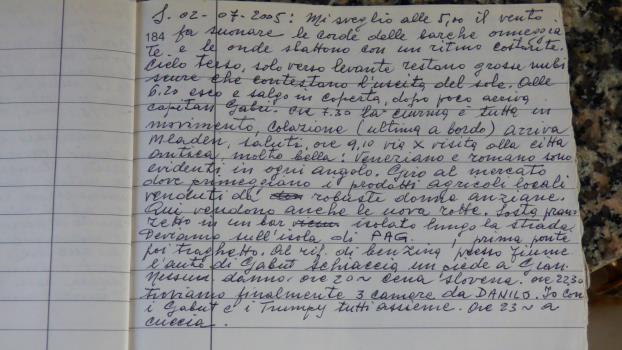 S. 02-07-2005: Mi sveglio alle 5,00 il vento
184 fa suonare le corde delle barche ormeggia
te e le onde sbattono con un ritmo costante.
Cielo terso, solo verso levante restano grosse nubi
scure che contestano l'uscita del sole. Alle
6.20 esco e salgo in coperta, dopo poco arriva
capitan Gabri. Ore 7.30 la ciurma è tutta in
movimento, colazione (ultima a bordo) arriva
Mladen, saluti, ore 9,10 via x visita alla città
antica, molto bella: veneziano e romano sono
evidenti in ogni angolo. Giro al mercato
dove primeggiano i prodotti agricoli locali
venduti da robuste donne anziane.
Qui vendono anche le uova rotte. Sosta pran
zetto in un bar isolato lungo la strada.
Deviamo sull'isola di PAG. prima ponte
poi traghetto. Al rif. di benzina presso Fiume
l'auto di Gabut schiaccia un piede a Gian.
Nessun danno. Ore 20 ~ cena slovena. Ore 22,30
troviamo finalmente 3 camere da DANILO. Io con
i Gabut e i Trumpy tutti assieme. Ore 23 ~ a
cuccia.